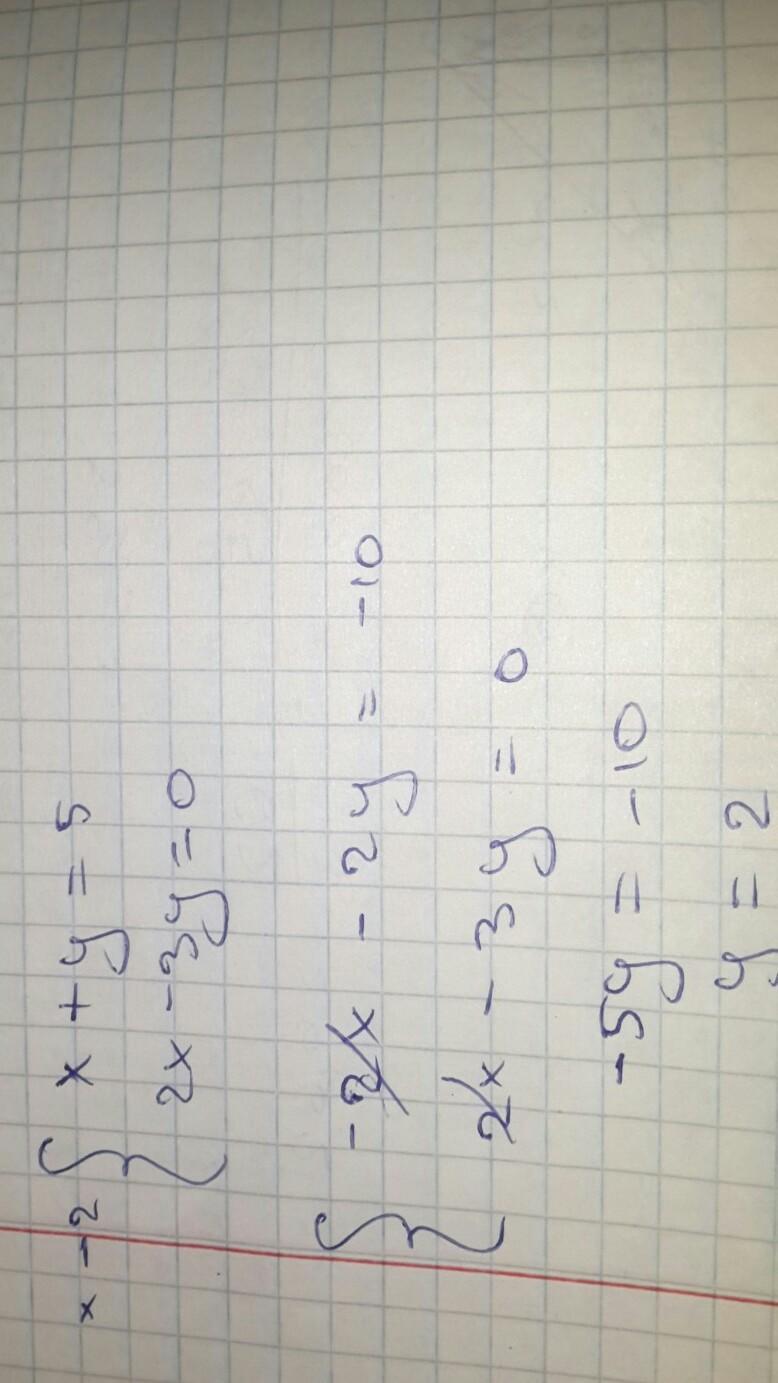 x -2 { x + y = 5
2x - 3y = 0
{ -2x - 2y = -10
2x - 3y = 0
-5y = -10
y = 2